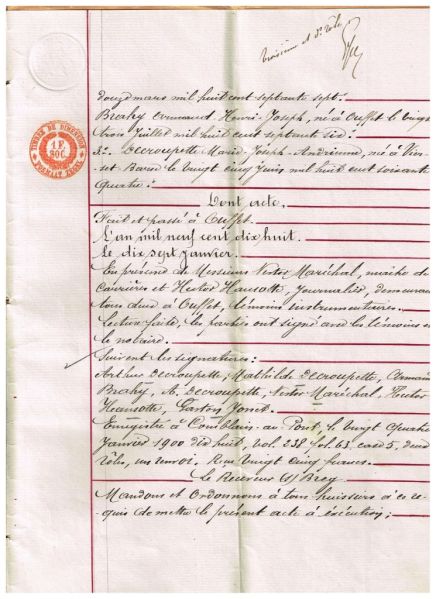 troisième et d. rôle
TIMBRE DE DIMENSION
1 F.
30C.
douze mars mil huit cent septante sept.
Brahy Armand Henri Joseph, né à Ouffet le vingt
trois Juillet mil huit cent septante six:
3° Decroupette Marie Joseph Andrienne, né à Vier-
set Barse le vingt cinq Juin mil huit cent soixante
quatre:
Dont acte,
Fait et passé à Ouffet.
L'an mil neuf cent dix huit.
Le dix sept Janvier.
En présence de Messieurs Nestor Maréchal, maître de
carrières et Hector Hansotte, journalier, demeurant
tous deux à Ouffet, témoins instrumentaires.
Lecture faite, les parties ont signé avec les témoins et
le notaire.
Suivent les signatures:
Arthur Decroupette, Mathilde Decroupette, Armand
Brahy, A. Decroupette, Nestor Maréchal, Hector
Hansotte, Gaston Jonet.
Enregistré à Comblain-au-Pont, le vingt quatre
Janvier 1900 dix huit, vol. 238 fol. 63, case 5, deux
rôles, un renvoi. Reçu vingt cinq francs.
Le Receveur (s) Brey
Mandons et Ordonnons à tous huissiers à ce re-
quis de mettre le présent acte à exécution;